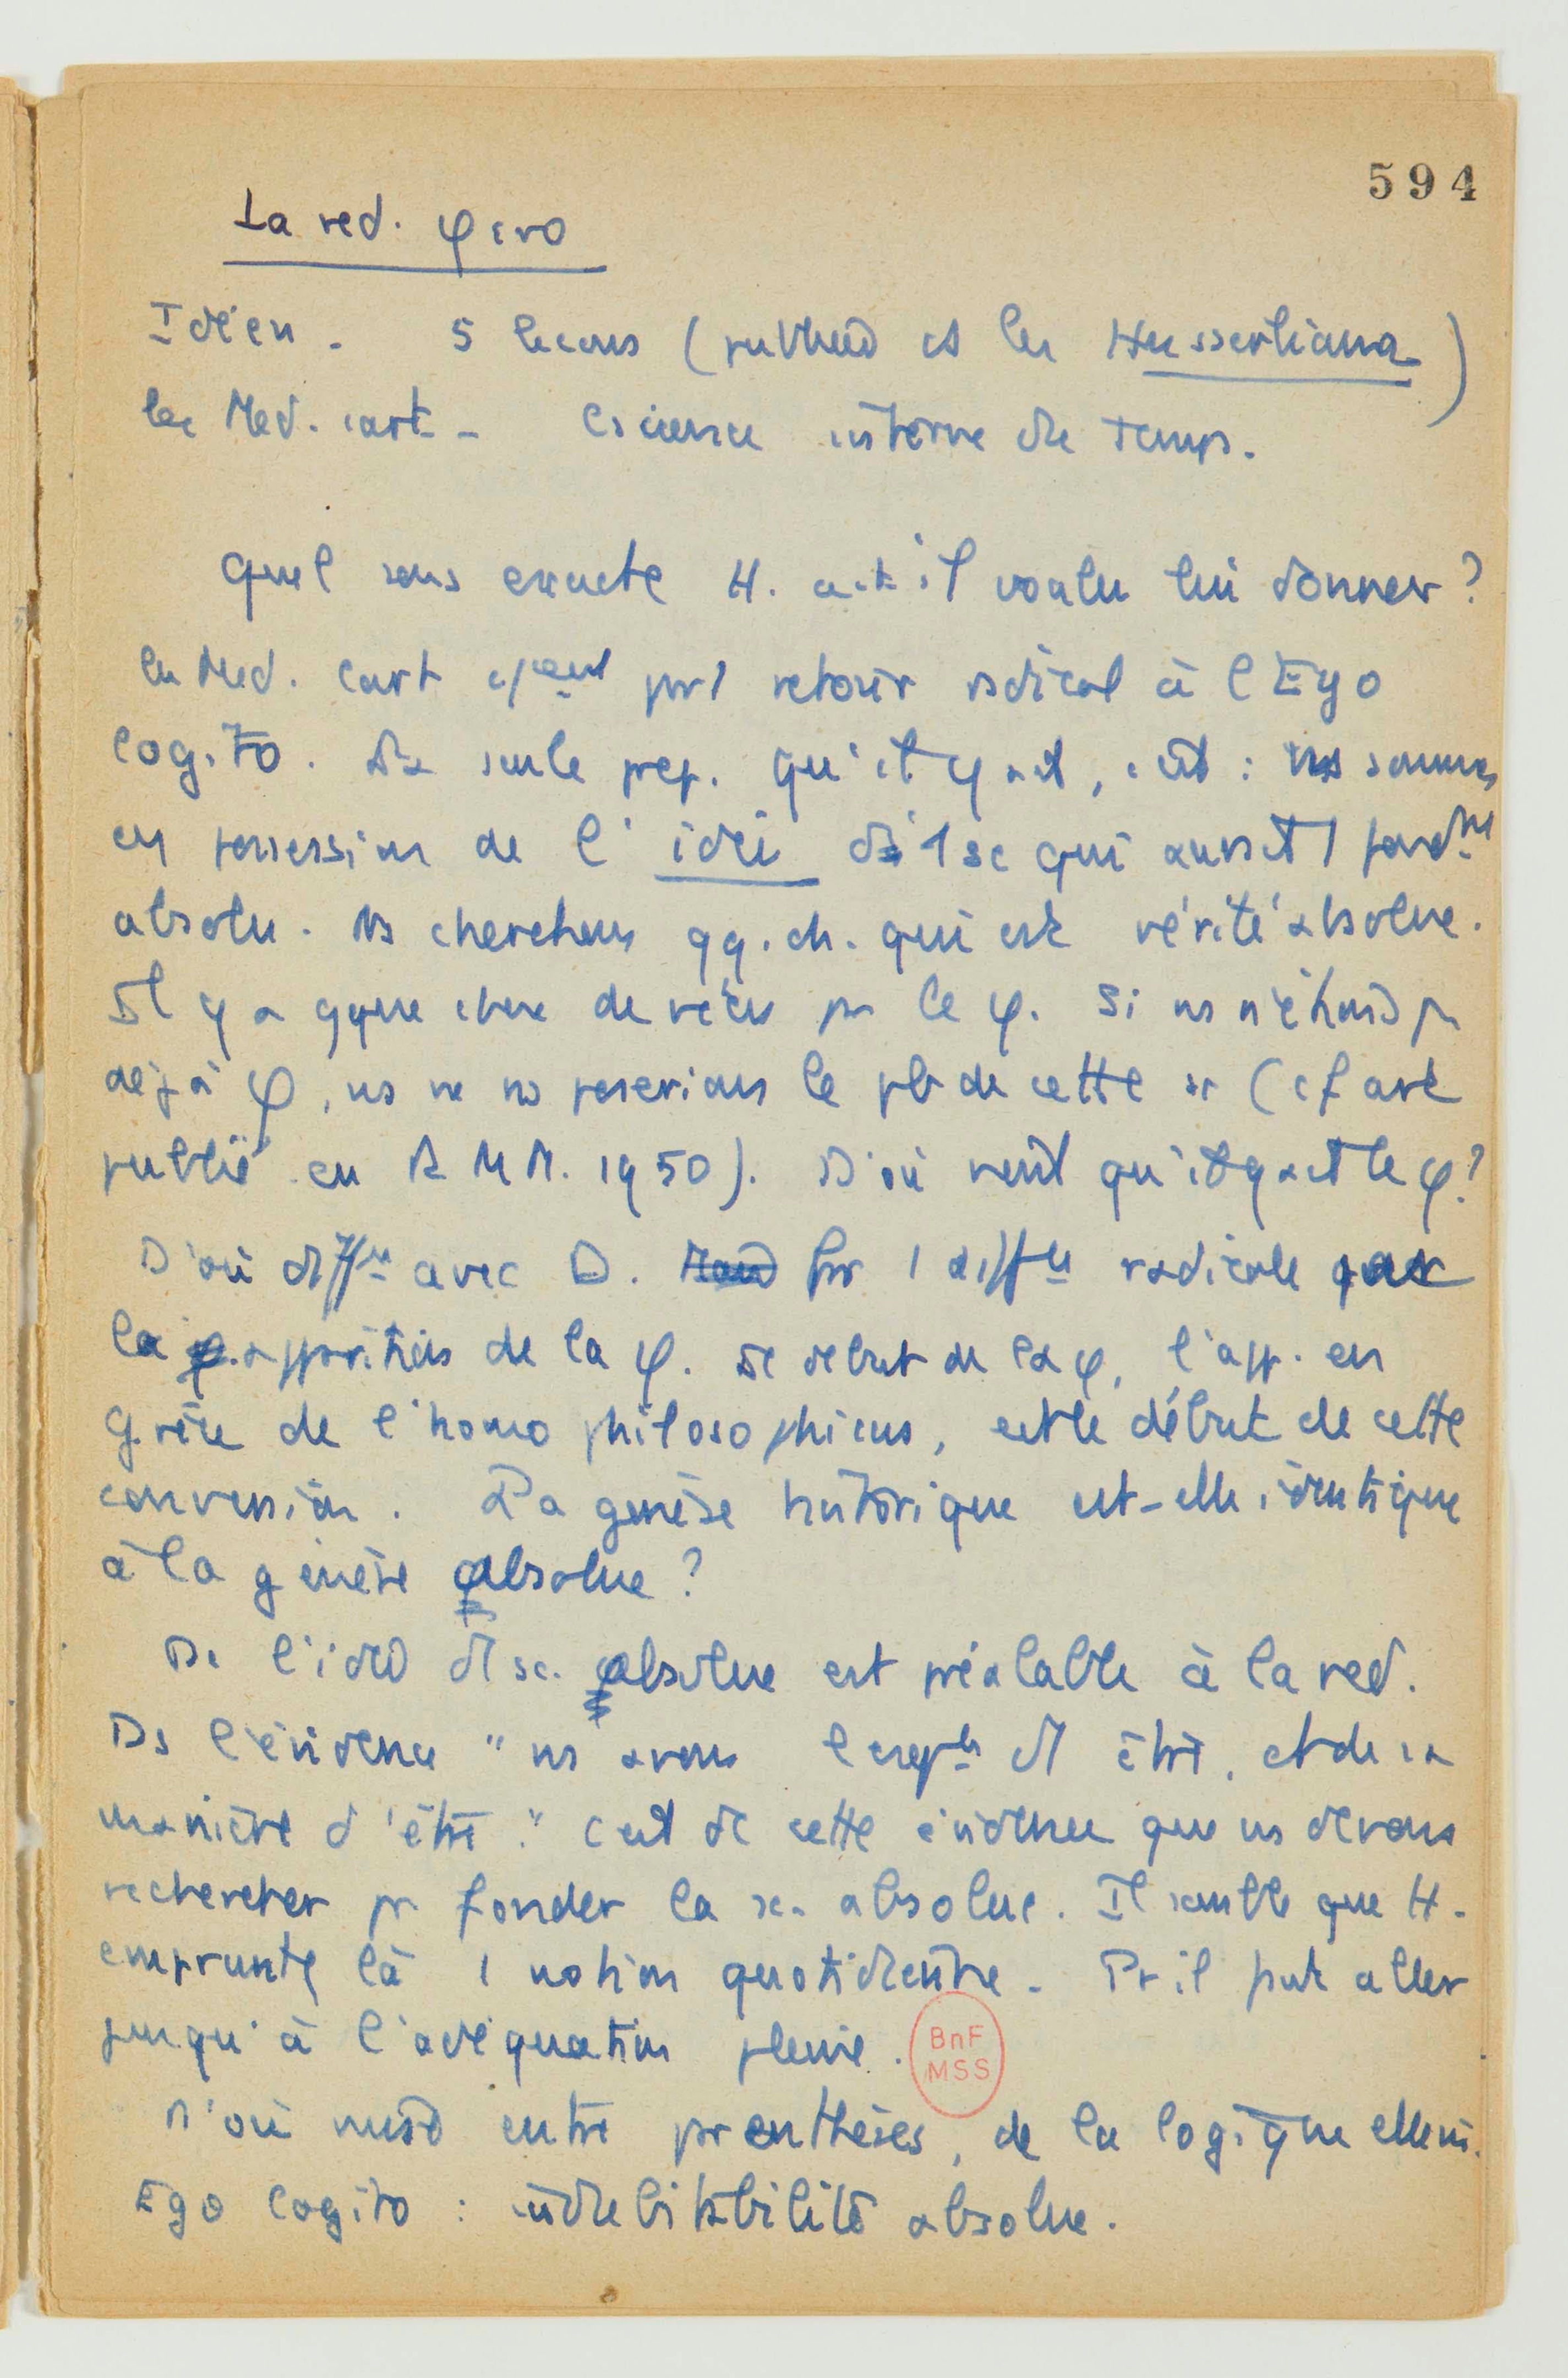 594
La red. φ
Idéen - 5 lecons (publiées ds les Husserliana)
les Med. cart - Cscience interne du temps.
Quel sens exacte H. a-t-il voulu lui donner ?
les Med. Cart retour radical à l'Ego
cogito. La seule prep. qu'il y ait, c'est : ns sommes
en possession de l' idée d'1 sc qui aurait 1 fondmt
absolu. Ns cherchons qq. ch. qui est vérité absolue.
Il y a qque chose de vécu pr le φ. Si ns n'étions ps
déjà φ, ns ne ns poserions le pb de cette sc (cf art
publié en R M M. 1950). D'où vient qu'il y ait le φ ?
D'où diffce avec D. Pr 1 diffce radicale par
la apparition de la φ. Le début de la φ, l'app. en
Grèce de l'homo philosophicus, est le début de cette
conversion. La genèse historique est-elle identique
à la genèse absolue ?
Ds l'idée d'1 sc. absolue est préalable à la red.
Ds l'évidence "ns avons l'expce d'1 être, et de sa
manière d'être." C'est de cette évidence que ns devons
rechercher pr fonder la sc. absolue. Il semble que H.
emprunte là 1 notion quotidienne. Pr il peut aller
jusqu'à l'adéquation pleine.
BnF
MSS
D'où mise entre parenthèses, de la logique elle m.
Ego cogito : indubitabilité absolue.